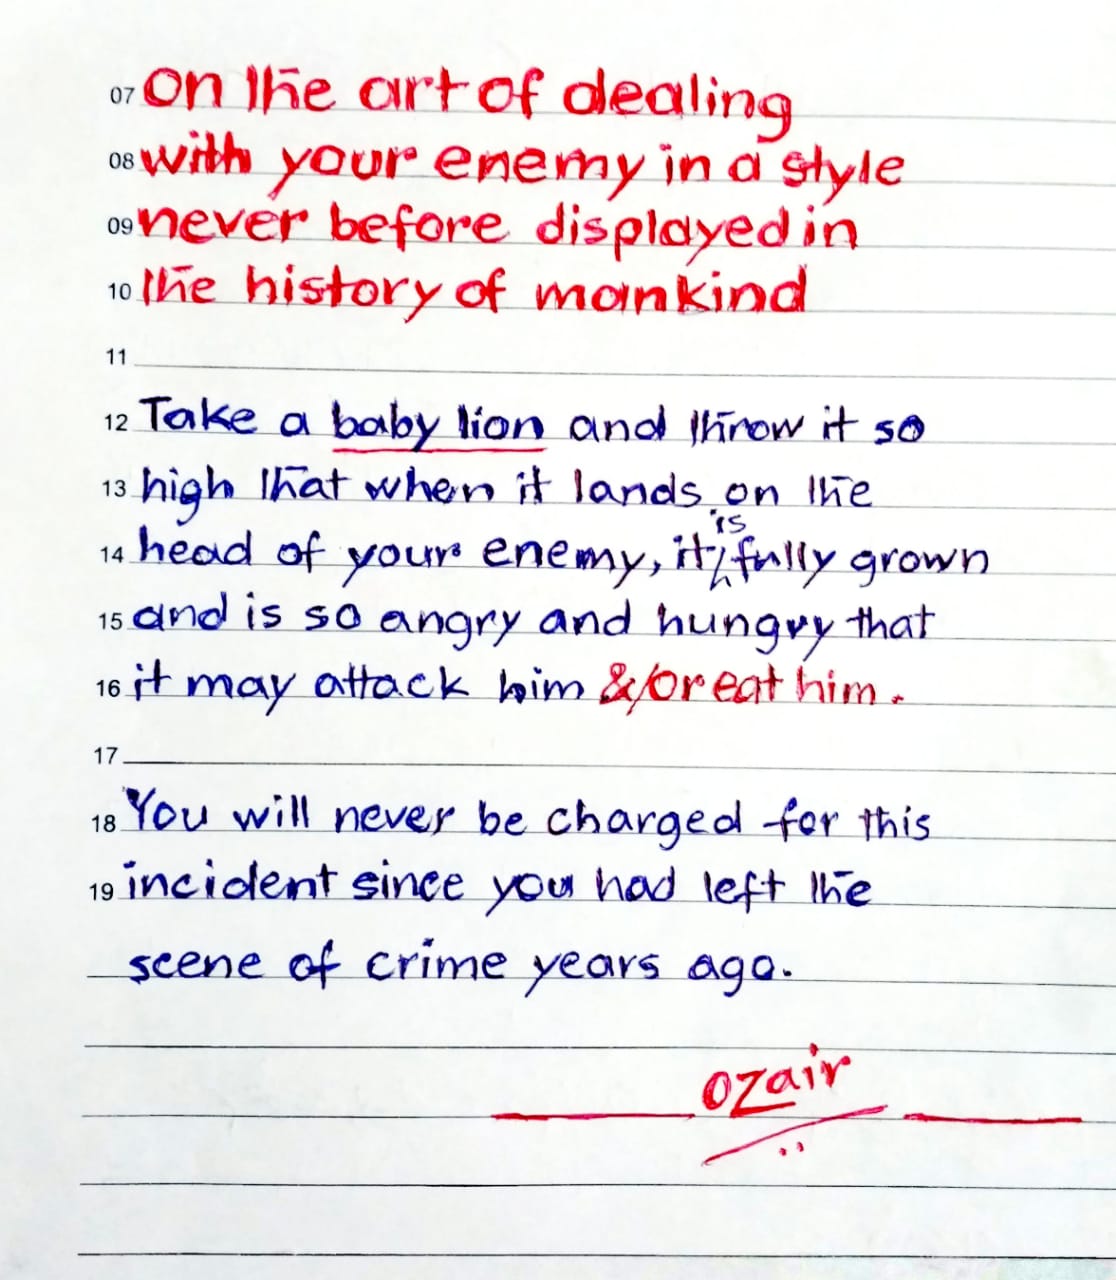 07 On the art of dealing
08 with your enemy in a style
09 never before displayed in
10 the history of mankind
11
12 Take a baby lion and throw it so
13 high that when it lands on the
is
14 head of your enemy, it fully grown
15 and is so angry and hungry that
16 it may attack him &/or eat him.
17
18 You will never be charged for this
19 incident since you had left the
scene of crime years ago.
Ozair